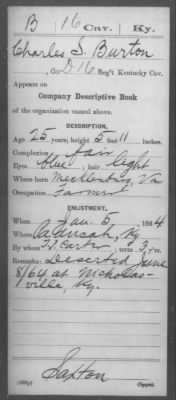 B | 16 Cav. | Ky.
Charles S. Burton
, Co. D, 16 Reg't Kentucky Cav.
Appears on
Company Descriptive Book
of the organization named above.
DESCRIPTION.
Age 25 years; height 5 feet 11 inches.
Complexion fair
Eyes blue; hair light
Where born Mecklenburg, Va
Occupation Farmer
ENLISTMENT.
When Jan. 5, 1864
Where Paducah, Ky
By whom Carter; term 3 y'rs.
Remarks: Deserted June
8/64 at Nicholas-
ville, Ky.
Saxton
Copyist.